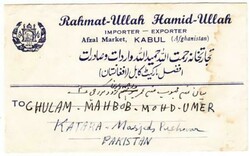 Rahmat-Ullah Hamid-Ullah
IMPORTER - EXPORTER
Afzal Market, KABUL (Afghanistan)
تجارتخانه رحمت الله حمید الله واردات و صادرات
افضل مارکیت کابل (افغانستان)
TO GHULAM - MAHBOB - MOHD - UMER
KATORA - Masjid, Peshawar
PAKISTAN